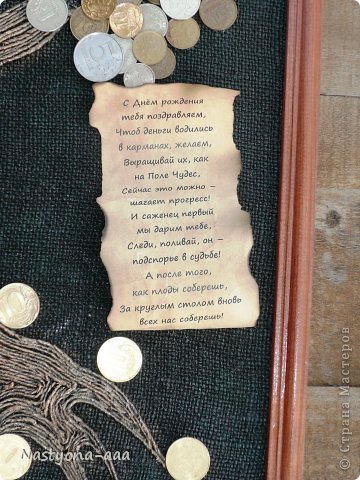 С Днём рождения
тебя поздравляем,
Чтоб деньги водились
в карманах, желаем,
Выращивай их, как
на Поле Чудес,
Сейчас это можно –
шагает прогресс!
И саженец первый
мы дарим тебе,
Следи, поливай, он –
подспорье в судьбе!
А после того,
как плоды соберешь,
За круглым столом вновь
всех нас соберешь!
5
Nastyona-aaa
© Страна Мастеров